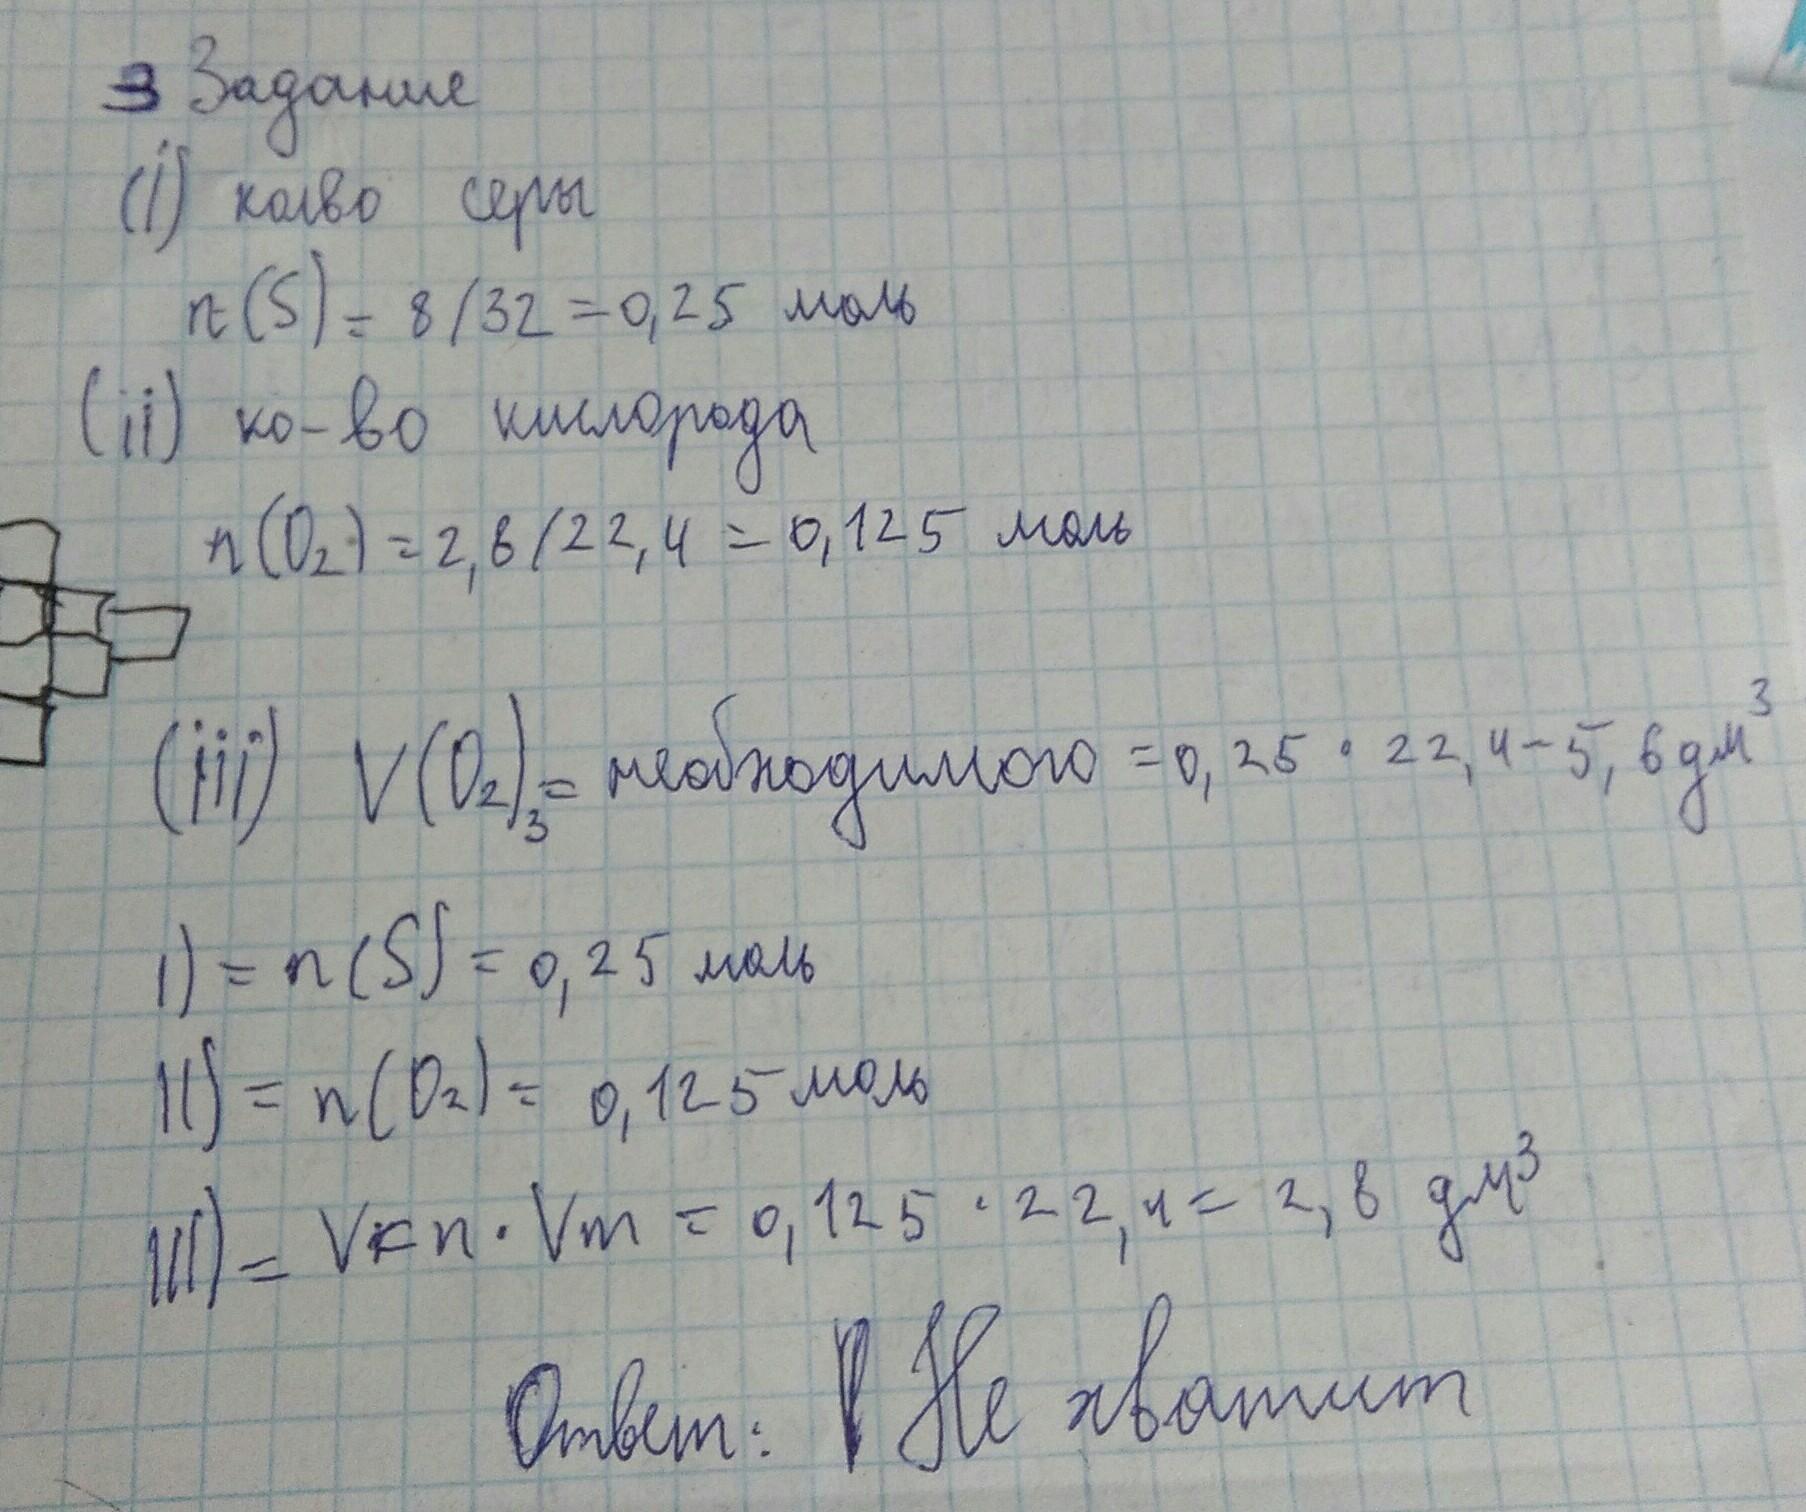 3 Задание
(i) колво серы
n(S) = 8/32 = 0,25 моль
(ii) ко-во кислорода
n(O₂) = 2,8/22,4 = 0,125 моль
(iii) V(O₂)₃ = необходимого = 0,25 · 22,4 - 5,6 дм³
I) = n(S) = 0,25 моль
II) = n(O₂) = 0,125 моль
III) = V = n · Vm = 0,125 · 22,4 = 2,8 дм³
Ответ: Не хватит